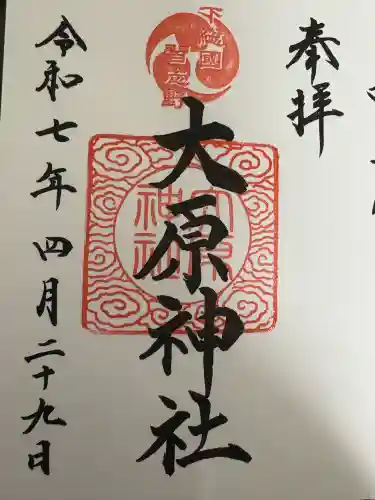 奉拝
下總國
習志野
大原神社
大原神社
令和七年四月二十九日